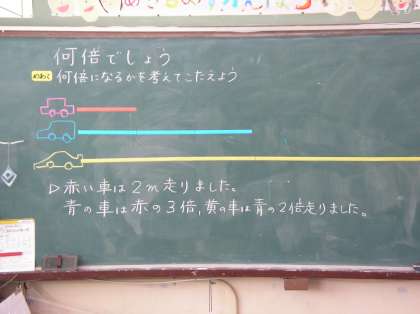 何倍でしょう
めあて 何倍になるかを考えてこたえよう
▷赤い車は2m走りました。
青の車は赤の3倍,黄の車は青の2倍走りました。